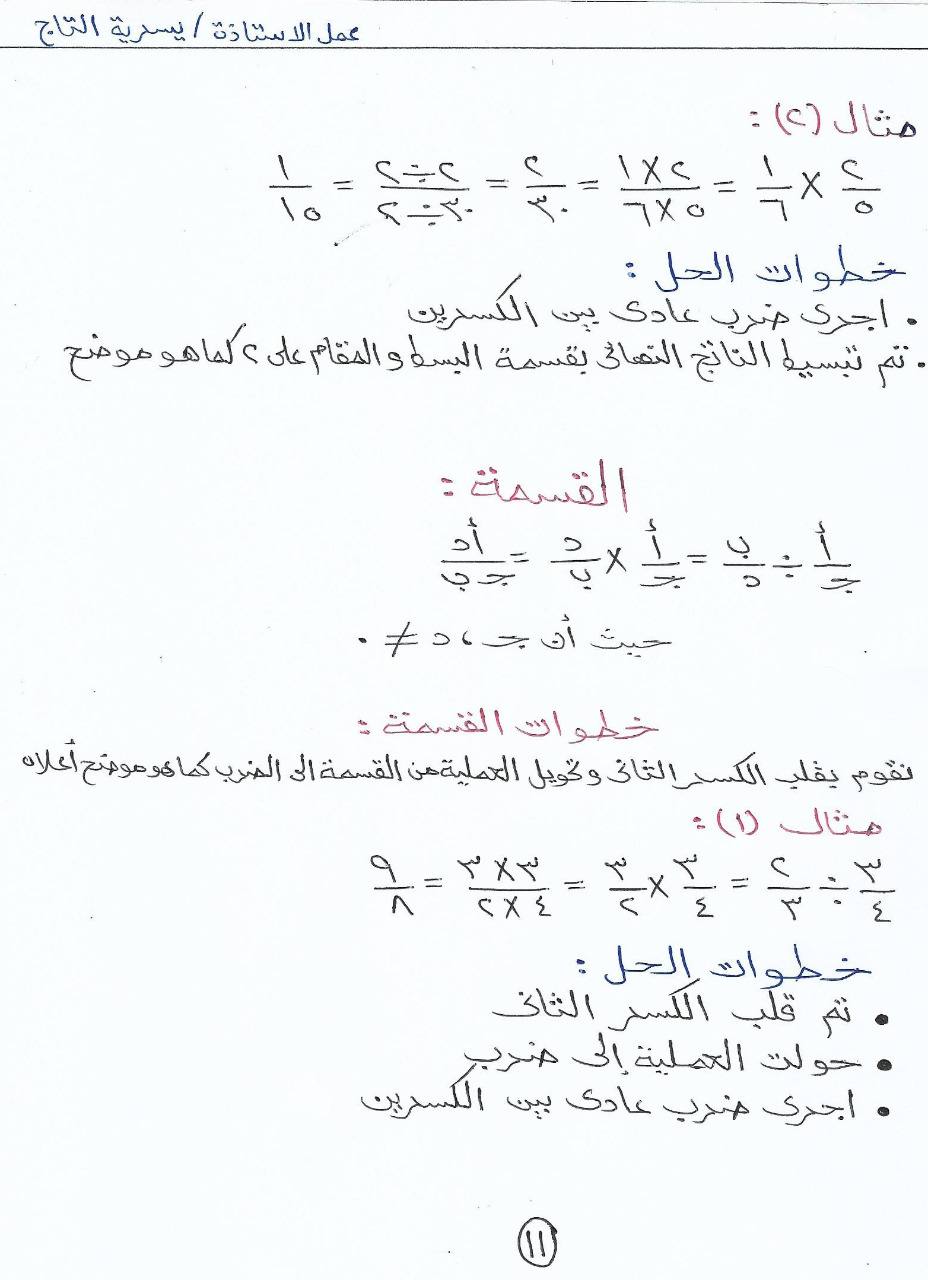 عمل الاستاذة / يسرية التاج
مثال (٢) :
٢/٥ × ١/٦ = ٢×١/٥×٦ = ٢/٣٠ = ٢÷٢/٣٠÷٢ = ١/١٥
خطوات الحل :
• اجرى ضرب عادى بين الكسرين
• تم تبسيط الناتج النهائى بقسمة البسط والمقام على ٢ كما هو موضح
القسمة :
أ/جـ ÷ ب/د = أ/جـ × د/ب = أد/جـ ب
حيث أن جـ ، د ≠ ٠
خطوات القسمة :
نقوم بقلب الكسر الثانى وتحويل العملية من القسمة الى الضرب كما هو موضح أعلاه
مثال (١) :
٣/٤ ÷ ٢/٣ = ٣/٤ × ٣/٢ = ٣×٣/٤×٢ = ٩/٨
خطوات الحل :
• تم قلب الكسر الثانى
• حولت العملية إلى ضرب
• اجرى ضرب عادى بين الكسرين
١١